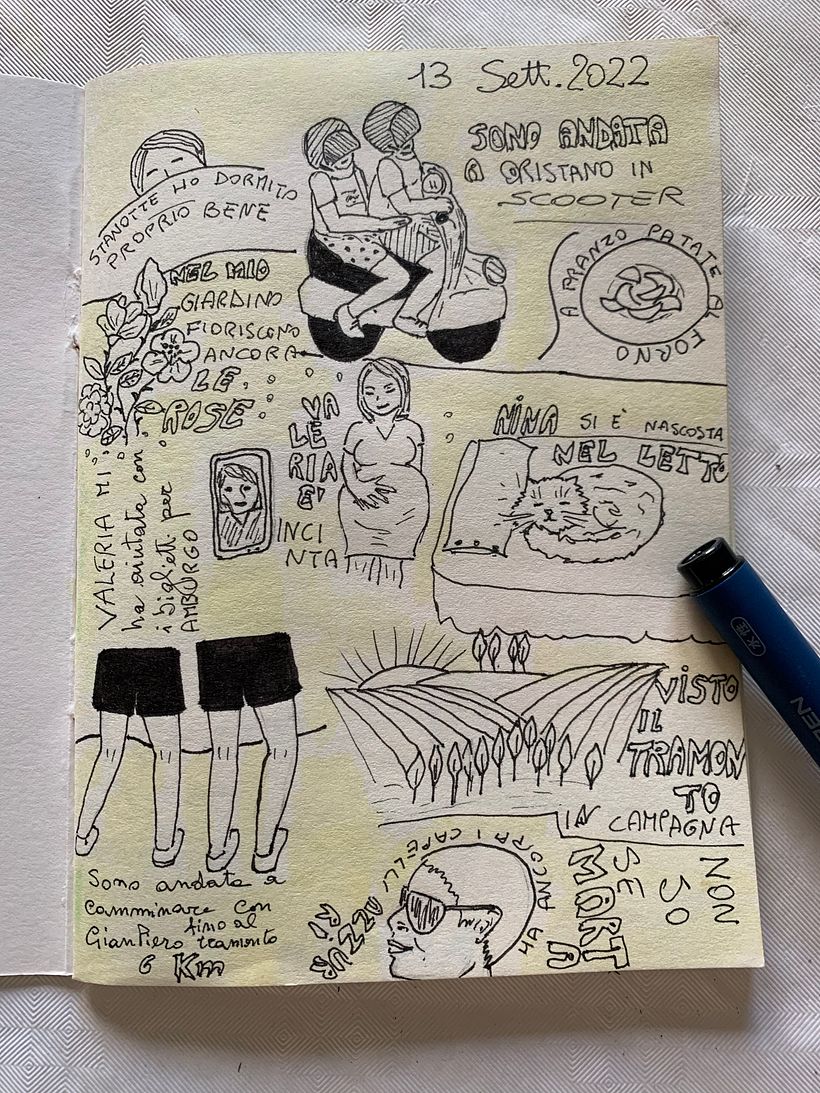 13 Sett. 2022
SONO ANDATA
A ORISTANO IN
SCOOTER
STANOTTE HO DORMITO
PROPRIO BENE
NEL MIO
GIARDINO
FIORISCONO
ANCORA
LE
ROSE
A PRANZO PATATE AL FORNO
VA
LE
RIA
E'
INCI
NTA
NINA SI E' NASCOSTA
NEL LETTO
VALERIA MI
ha aiutata con
i biglietti per
AMBURGO
VISTO
IL
TRAMON
TO
IN CAMPAGNA
Sono andata a
camminare con
GianPiero fino al
tramonto
6 Km
HA ANCORA I CAPELLI
NON
SO
SE
MORT
A